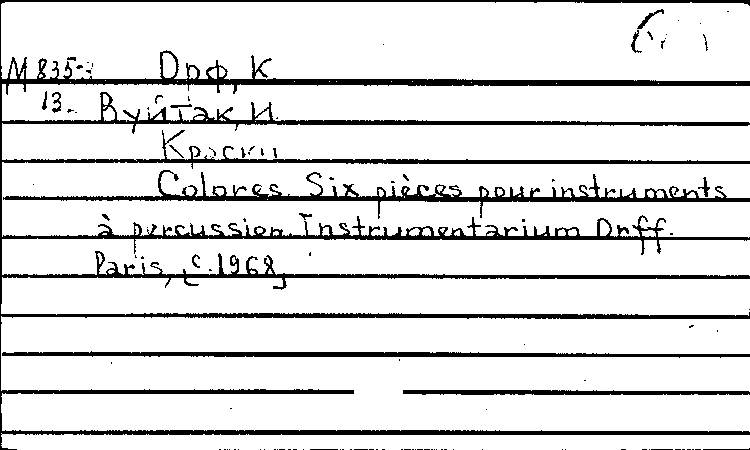 М 835-3 Орф, К.
13. Вуйтак, И.
Краски
Colores. Six pièces pour instruments
à percussion. Instrumentarium Orff.
Paris, [c.1968]